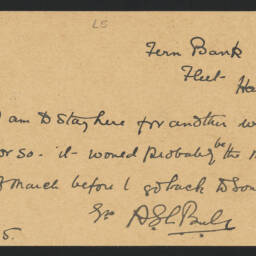 L5
Fern Bank
Fleet
Ha
I am to stay here for another w
or so. it would probably be the
of March before I go back to
5.